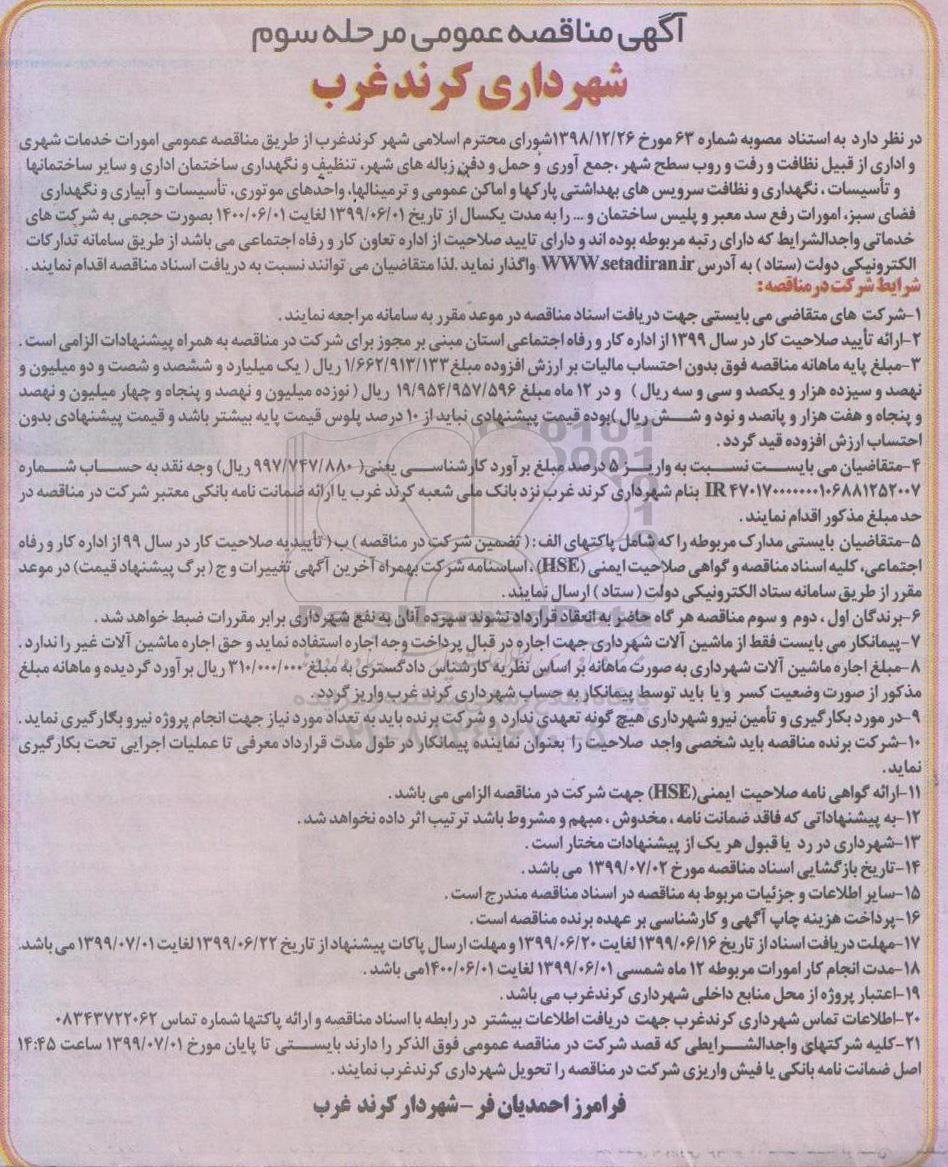 آگهی مناقصه عمومی مرحله سوم
شهرداری کرند غرب
در نظر دارد به استناد مصوبه شماره ۶۳ مورخ ۱۳۹۸/۱۲/۲۶شورای محترم اسلامی شهر کرندغرب از طریق مناقصه عمومی امورات خدمات شهری
و اداری از قبیل نظافت و رفت و روب سطح شهر ،جمع آوری و حمل و دفن زباله های شهر، تنظیف و نگهداری ساختمان اداری و سایر ساختمانها
و تأسیسات ، نگهداری و نظافت سرویس های بهداشتی پارکها و اماکن عمومی و ترمینالها، واحدهای موتوری، تأسیسات و آبیاری و نگهداری
فضای سبز، امورات رفع سد معبر و پلیس ساختمان و ... را به مدت یکسال از تاریخ ۱۳۹۹/۰۶/۰۱ لغایت ۱۴۰۰/۰۶/۰۱ بصورت حجمی به شرکت های
خدماتی واجدالشرایط که دارای رتبه مربوطه بوده اند و دارای تایید صلاحیت از اداره تعاون کار و رفاه اجتماعی می باشد از طریق سامانه تدارکات
الکترونیکی دولت (ستاد ) به آدرس WWW.setadiran.ir واگذار نماید .لذا متقاضیان می توانند نسبت به دریافت اسناد مناقصه اقدام نمایند .
شرایط شرکت در مناقصه :
۱-شرکت های متقاضی می بایستی جهت دریافت اسناد مناقصه در موعد مقرر به سامانه مراجعه نمایند .
۲-ارائه تأیید صلاحیت کار در سال ۱۳۹۹ از اداره کار و رفاه اجتماعی استان مبنی بر مجوز برای شرکت در مناقصه به همراه پیشنهادات الزامی است .
۳-مبلغ پایه ماهانه مناقصه فوق بدون احتساب مالیات بر ارزش افزوده مبلغ ۱/۶۶۲/۹۱۳/۱۳۳ ریال ( یک میلیارد و ششصد و شصت و دو میلیون و
نهصد و سیزده هزار و یکصد و سی و سه ریال ) و در ۱۲ ماه مبلغ ۱۹/۹۵۴/۹۵۷/۵۹۶ ریال ( نوزده میلیون و نهصد و پنجاه و چهار میلیون و نهصد
و پنجاه و هفت هزار و پانصد و نود و شش ریال )بوده قیمت پیشنهادی نباید از ۱۰ درصد پلوس قیمت پایه بیشتر باشد و قیمت پیشنهادی بدون
احتساب ارزش افزوده قید گردد .
۴-متقاضیان می بایست نسبت به واریز ۵ درصد مبلغ برآورد کارشناسی یعنی( ۹۹۷/۷۴۷/۸۸۰ ریال) وجه نقد به حساب شماره
IR ۴۷۰۱۷۰۰۰۰۰۰۰۱۰۶۸۸۱۲۵۲۰۰۷ بنام شهرداری کرند غرب نزد بانک ملی شعبه کرند غرب یا ارائه ضمانت نامه بانکی معتبر شرکت در مناقصه در
حد مبلغ مذکور اقدام نمایند .
۵-متقاضیان بایستی مدارک مربوطه را که شامل پاکتهای الف : ( تضمین شرکت در مناقصه ) ب( تأییدیه صلاحیت کار در سال ۹۹ از اداره کار و رفاه
اجتماعی، کلیه اسناد مناقصه و گواهی صلاحیت ایمنی (HSE) ، اساسنامه شرکت بهمراه آخرین آگهی تغییرات و ج ( برگ پیشنهاد قیمت) در موعد
مقرر از طریق سامانه ستاد الکترونیکی دولت ( ستاد ) ارسال نمایند .
۶-برندگان اول ، دوم و سوم مناقصه هر گاه حاضر به انعقاد قرارداد نشوند سپرده آنان به نفع شهرداری برابر مقررات ضبط خواهد شد .
۷-پیمانکار می بایست فقط از ماشین آلات شهرداری جهت اجاره در قبال پرداخت وجه اجاره استفاده نماید و حق اجاره ماشین آلات غیر را ندارد .
۸-مبلغ اجاره ماشین آلات شهرداری به صورت ماهانه بر اساس نظریه کارشناس دادگستری به مبلغ ۳۱۰/۰۰۰/۰۰۰ ریال برآورد گردیده و ماهانه مبلغ
مذکور از صورت وضعیت کسر و یا باید توسط پیمانکار به حساب شهرداری کرند غرب واریز گردد.
۹-در مورد بکارگیری و تأمین نیرو شهرداری هیچ گونه تعهدی ندارد و شرکت برنده باید به تعداد مورد نیاز جهت انجام پروژه نیرو بکارگیری نماید .
۱۰-شرکت برنده مناقصه باید شخصی واجد صلاحیت را بعنوان نماینده پیمانکار در طول مدت قرارداد معرفی تا عملیات اجرایی تحت بکارگیری
نماید .
۱۱-ارائه گواهی نامه صلاحیت ایمنی(HSE) جهت شرکت در مناقصه الزامی می باشد .
۱۲-به پیشنهاداتی که فاقد ضمانت نامه ، مخدوش ، مبهم و مشروط باشد ترتیب اثر داده نخواهد شد .
۱۳-شهرداری در رد یا قبول هر یک از پیشنهادات مختار است .
۱۴-تاریخ بازگشایی اسناد مناقصه مورخ ۱۳۹۹/۰۷/۰۲ می باشد .
۱۵-سایر اطلاعات و جزئیات مربوط به مناقصه در اسناد مناقصه مندرج است .
۱۶-پرداخت هزینه چاپ آگهی و کارشناسی بر عهده برنده مناقصه است .
۱۷-مهلت دریافت اسناد از تاریخ ۱۳۹۹/۰۶/۱۶ لغایت ۱۳۹۹/۰۶/۲۰ و مهلت ارسال پاکات پیشنهاد از تاریخ ۱۳۹۹/۰۶/۲۲ لغایت ۱۳۹۹/۰۷/۰۱ می باشد.
۱۸-مدت انجام کار امورات مربوطه ۱۲ ماه شمسی ۱۳۹۹/۰۶/۰۱ لغایت ۱۴۰۰/۰۶/۰۱می باشد .
۱۹-اعتبار پروژه از محل منابع داخلی شهرداری کرندغرب می باشد .
۲۰-اطلاعات تماس شهرداری کرندغرب جهت دریافت اطلاعات بیشتر در رابطه با اسناد مناقصه و ارائه پاکتها شماره تماس ۰۸۳۴۳۷۲۲۰۶۲
۲۱-کلیه شرکتهای واجدالشرایطی که قصد شرکت در مناقصه عمومی فوق الذکر را دارند بایستی تا پایان مورخ ۱۳۹۹/۰۷/۰۱ ساعت ۱۴:۴۵
اصل ضمانت نامه بانکی یا فیش واریزی شرکت در مناقصه را تحویل شهرداری کرندغرب نمایند .
فرامرز احمدیان فر - شهردار کرند غرب